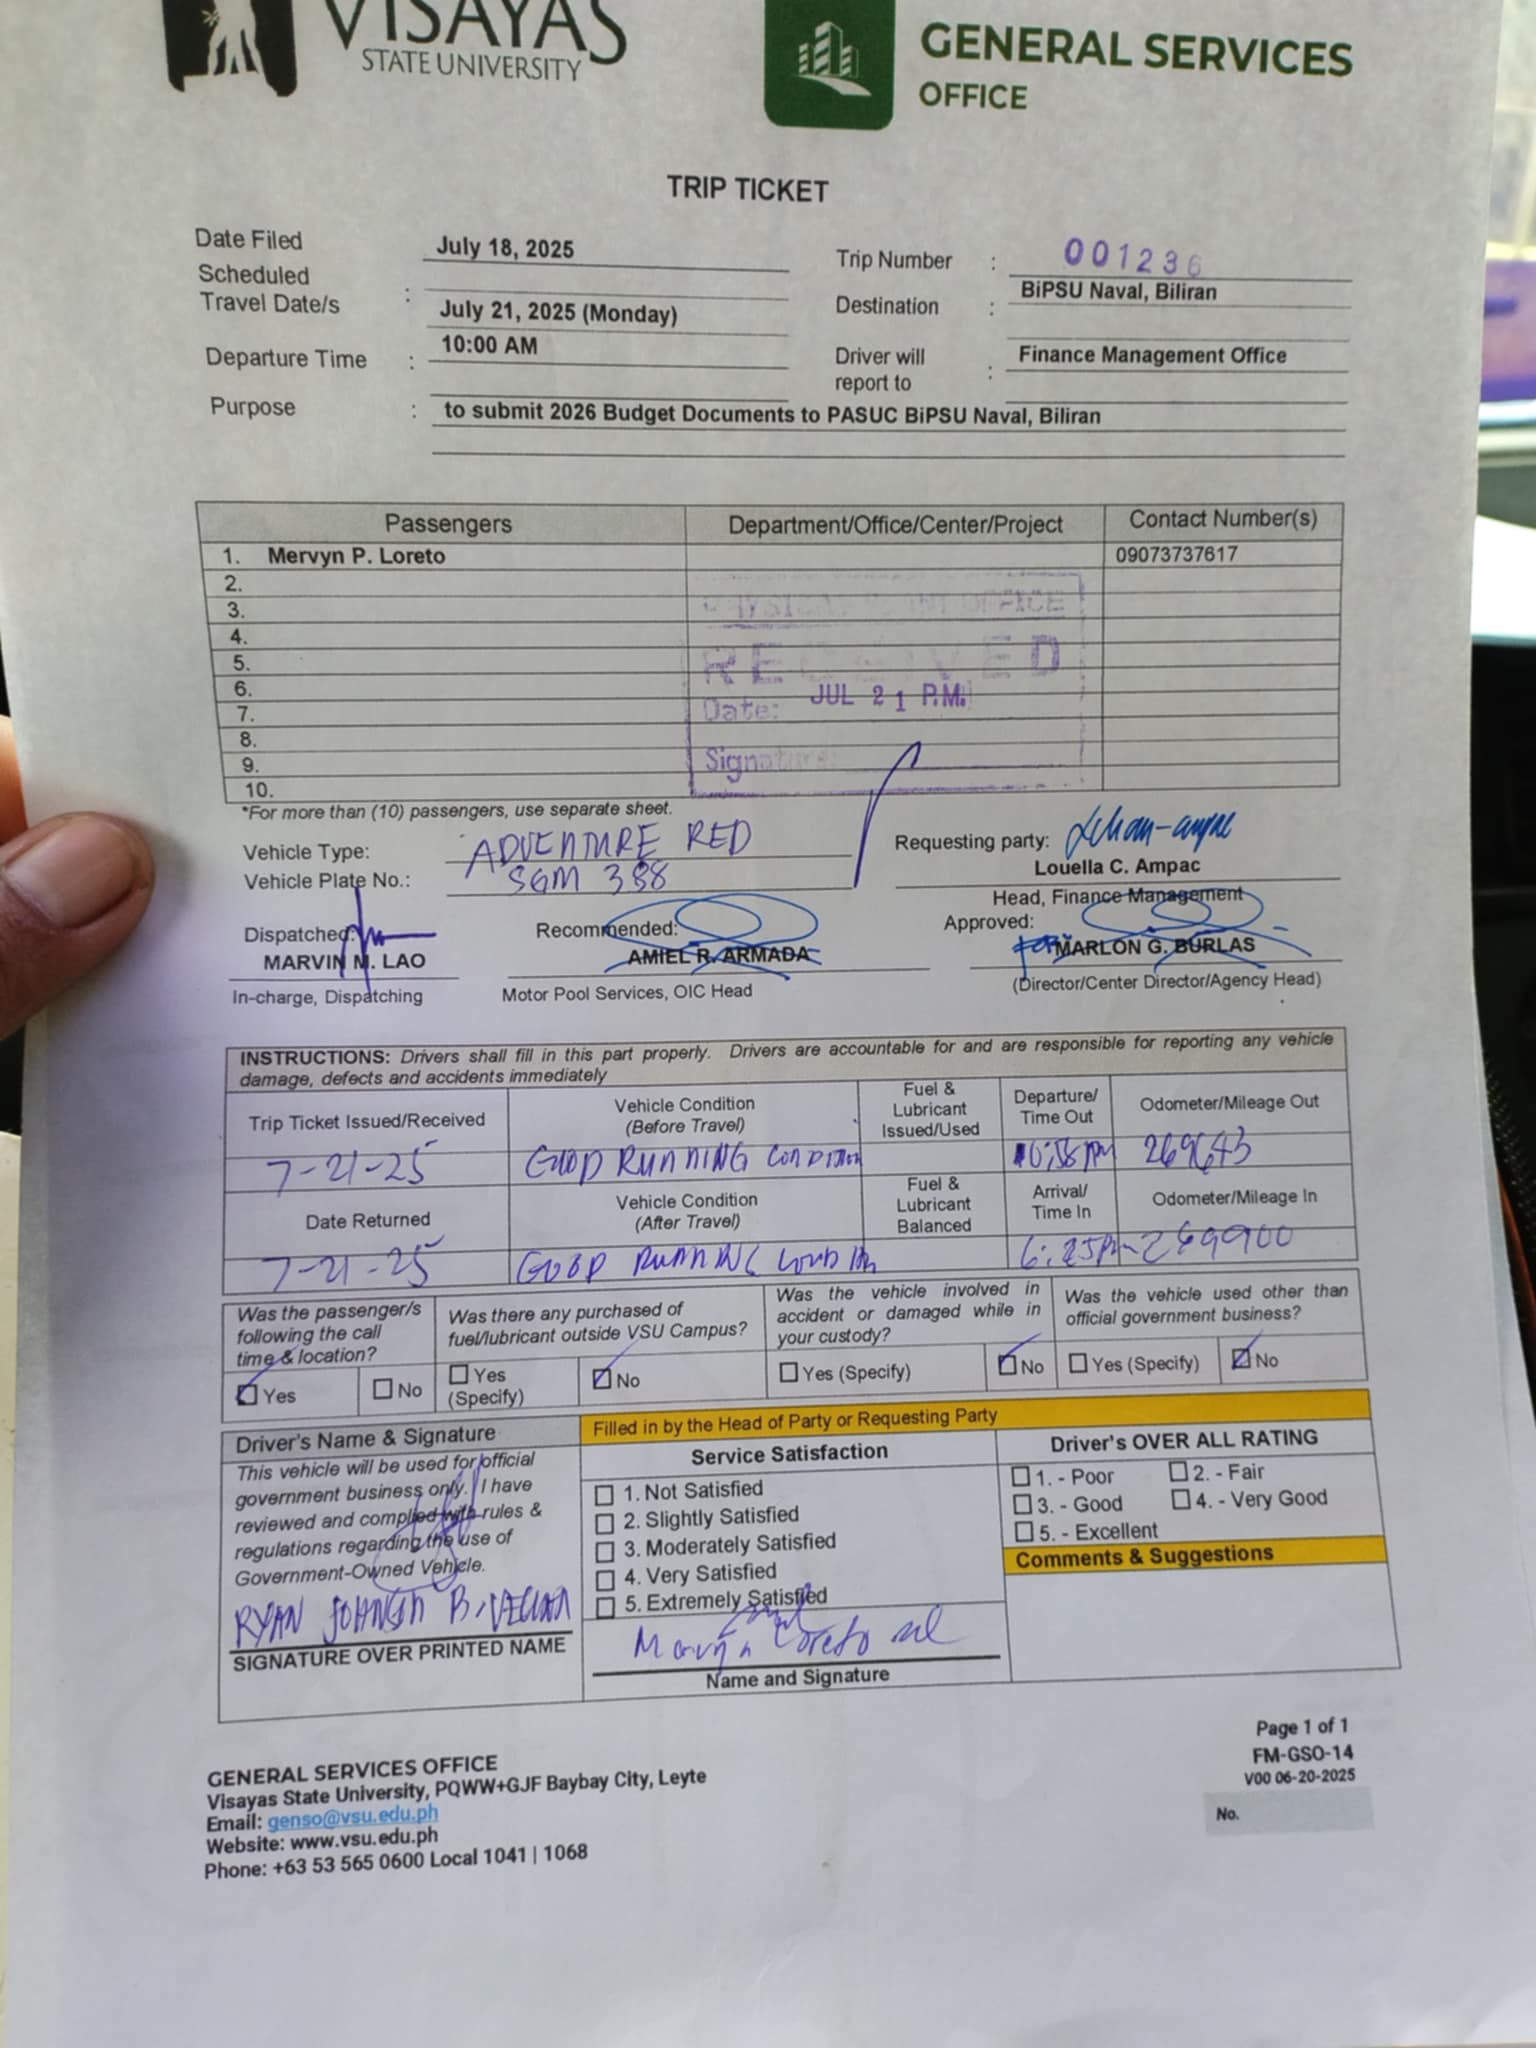 VISAYAS
STATE UNIVERSITY
GENERAL SERVICES
OFFICE
TRIP TICKET
Date Filed July 18, 2025
Trip Number : 001236
Scheduled
Travel Date/s : July 21, 2025 (Monday)
Destination : BiPSU Naval, Biliran
Departure Time : 10:00 AM
Driver will
report to : Finance Management Office
Purpose : to submit 2026 Budget Documents to PASUC BiPSU Naval, Biliran
Passengers Department/Office/Center/Project Contact Number(s)
1. Mervyn P. Loreto 09073737617
2.
3.
4.
5.
6.
7.
8.
9.
10.
PHYSICAL PLANT OFFICE
RECEIVED
Date: JUL 21 P.M.
Signature:
*For more than (10) passengers, use separate sheet.
Vehicle Type: ADVENTURE RED
Vehicle Plate No.: SGM 388
Requesting party:
Louella C. Ampac
Head, Finance Management
Dispatched:
MARVIN M. LAO
In-charge, Dispatching
Recommended:
AMIEL R. ARMADA
Motor Pool Services, OIC Head
Approved:
MARLON G. BURLAS
(Director/Center Director/Agency Head)
INSTRUCTIONS: Drivers shall fill in this part properly. Drivers are accountable for and are responsible for reporting any vehicle
damage, defects and accidents immediately
Trip Ticket Issued/Received
Vehicle Condition
(Before Travel)
Fuel &
Lubricant
Issued/Used
Departure/
Time Out
Odometer/Mileage Out
7-21-25 GOOD RUNNING CONDITION 269643
Date Returned
Vehicle Condition
(After Travel)
Fuel &
Lubricant
Balanced
Arrival/
Time In
Odometer/Mileage In
7-21-25 GOOD RUNNING 269900
Was the passenger/s
following the call
time & location?
Yes No
Was there any purchased of
fuel/lubricant outside VSU Campus?
Yes
(Specify)
No
Was the vehicle involved in
accident or damaged while in
your custody?
Yes (Specify) No
Was the vehicle used other than
official government business?
Yes (Specify) No
Driver's Name & Signature
This vehicle will be used for official
government business only. I have
reviewed and complied with rules &
regulations regarding the use of
Government-Owned Vehicle.
RYAN
SIGNATURE OVER PRINTED NAME
Filled in by the Head of Party or Requesting Party
Service Satisfaction
1. Not Satisfied
2. Slightly Satisfied
3. Moderately Satisfied
4. Very Satisfied
5. Extremely Satisfied
Mervyn Loreto
Name and Signature
Driver's OVER ALL RATING
1. - Poor 2. - Fair
3. - Good 4. - Very Good
5. - Excellent
Comments & Suggestions
GENERAL SERVICES OFFICE
Visayas State University, PQWW+GJF Baybay City, Leyte
Email: genso@vsu.edu.ph
Website: www.vsu.edu.ph
Phone: +63 53 565 0600 Local 1041 | 1068
Page 1 of 1
FM-GSO-14
V00 06-20-2025
No.